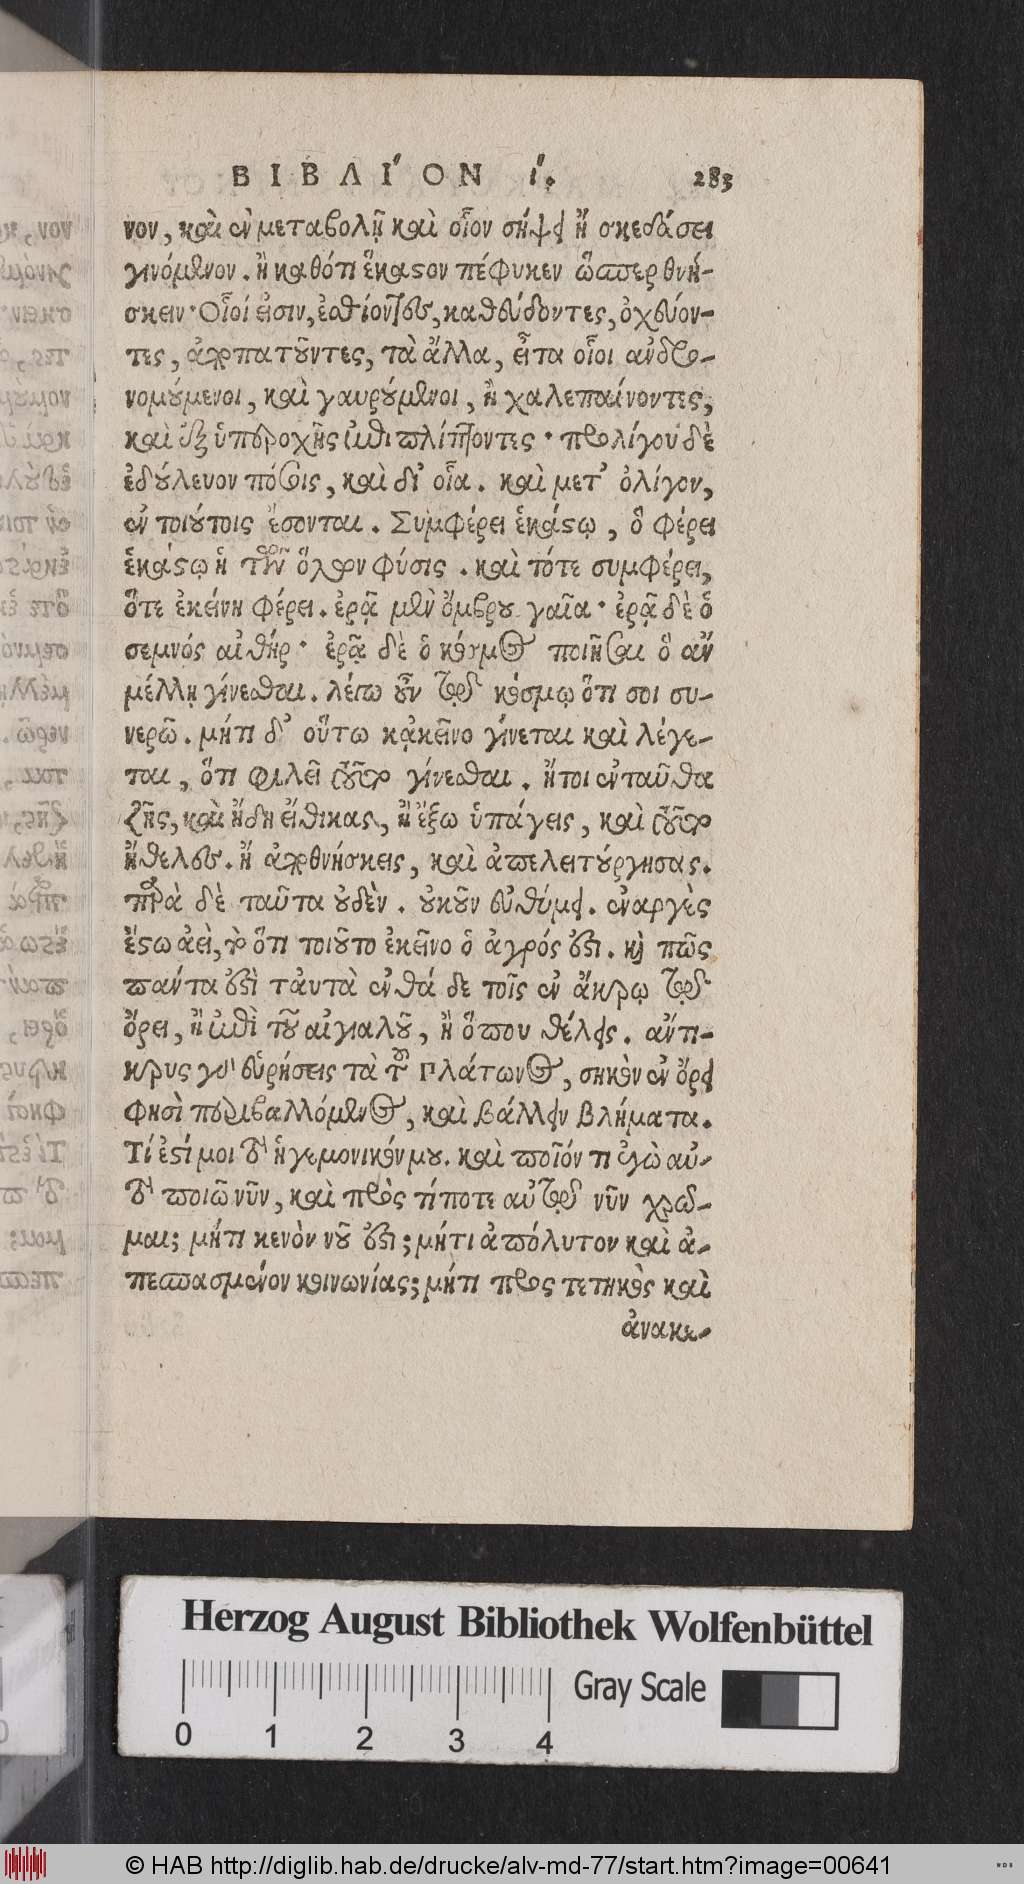 ΒΙΒΛΙ´ΟΝ ί. 283
νον, καὶ ἐν μεταβολῇ καὶ οἷον σήψει ἢ σκεδάσει
γινόμενον. ἢ καθότι ἕκαστον πέφυκεν ὥσπερ θνή-
σκειν· Οἷοί εἰσιν, ἐσθίοντες, καθεύδοντες, ὀχεύον-
τες, ἀποπατοῦντες, τὰ ἄλλα, εἶτα οἷοι ἀνδρο-
νομούμενοι, καὶ γαυρούμενοι, ἢ χαλεπαίνοντες,
καὶ ἐξ ὑπεροχῆς ἐπιπλήττοντες· προλίγου δὲ
ἐδούλευον πόσοις, καὶ δι' οἷα. καὶ μετ' ὀλίγον,
ἐν τοιούτοις ἔσονται. Συμφέρει ἑκάστῳ, ὃ φέρει
ἑκάστῳ ἡ τῶν ὅλων φύσις. καὶ τότε συμφέρει,
ὅτε ἐκείνη φέρει. ἐρᾷ μὲν ὄμβρου γαῖα· ἐρᾷ δὲ ὁ
σεμνός αἰθήρ· ἐρᾷ δὲ ὁ κόσμος ποιῆσαι ὃ ἂν
μέλλῃ γίνεσθαι. λέγω οὖν τῷ κόσμῳ ὅτι σοι συ-
νερῶ. μήτι δ' οὕτω κἀκεῖνο γίνεται καὶ λέγε-
ται, ὅτι φιλεῖ τοῦτο γίνεσθαι. ἤτοι ἐνταῦθα
ζῇς, καὶ ἤδη εἴθικας, ἢ ἔξω ὑπάγεις, καὶ τοῦτο
ἤθελες. ἢ ἀποθνήσκεις, καὶ ἀπελειτούργησας.
παρὰ δὲ ταῦτα οὐδὲν. οὐκοῦν εὐθύμει. ἐναργὲς
ἔστω ἀεὶ, τὸ ὅτι τοιοῦτο ἐκεῖνο ὁ ἀγρός ἐστι. καὶ πῶς
πάντα ἐστὶ ταὐτὰ ἐνθά δε τοῖς ἐν ἄκρῳ τῷ
ὄρει, ἢ ἐπὶ τοῦ αἰγιαλοῦ, ἢ ὅπου θέλεις. ἄντι-
κρυς γὰρ εὑρήσεις τὰ τοῦ Πλάτωνος, σηκὸν ἐν ὄρει
φησὶ περιβαλλόμενος, καὶ βάλλειν βλήματα.
Τί ἐστί μοι τὸ ἡγεμονικόν μου. καὶ ποῖόν τι ἐγὼ αὐ-
τὸ ποιῶ νῦν, καὶ πρὸς τί ποτε αὐτῷ νῦν χρῶ-
μαι; μήτι κενὸν νοῦ ἐστι; μήτι ἀπόλυτον καὶ ἀ-
πεσπασμένον κοινωνίας; μήτι προς τετηκὸς καὶ
ἀνακε-
Herzog August Bibliothek Wolfenbüttel
Gray Scale
0 1 2 3 4
© HAB http://diglib.hab.de/drucke/alv-md-77/start.htm?image=00641